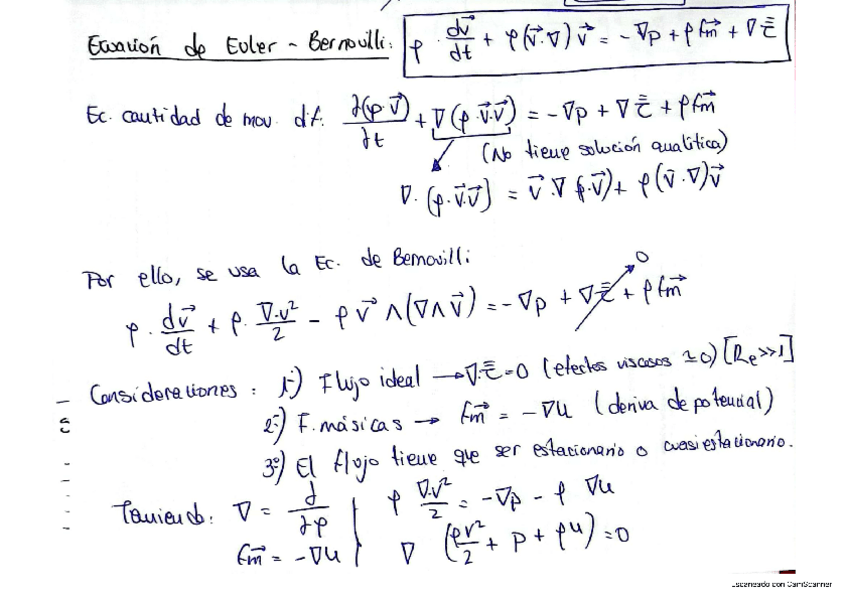 Ecuación de Euler - Bernouilli: ρ · dv⃗/dt + ρ(v⃗·∇)v⃗ = -∇p + ρf⃗m + ∇τ̿
Ec. cantidad de mov. dif. ∂(ρ·v⃗)/∂t + ∇(ρ·v⃗·v⃗) = -∇p + ∇τ̿ + ρf⃗m
(No tiene solución qualítica)
∇·(ρ·v⃗·v⃗) = v⃗·∇(ρ·v⃗) + ρ(v̄·∇)v⃗
Por ello, se usa la Ec. de Bernouilli:
ρ · dv⃗/dt + ρ · ∇·v²/2 - ρ v⃗ ∧ (∇∧v⃗) = -∇p + ∇τ̿ + ρf⃗m
0
Consideraciones: 1º) Flujo ideal → ∇·τ̿ = 0 (efectos viscosos ≃ 0) [Re>>1]
2º) F. másicas → f⃗m = -∇U (deriva de potencial)
3º) El flujo tiene que ser estacionario o cuasiestacionario.
Teniendo: ∇ = ∂/∂ρ | ρ ∇·v²/2 = -∇p - ρ ∇U
f⃗m = -∇U | ∇ (ρv²/2 + P + ρU) = 0
Escaneado con CamScanner